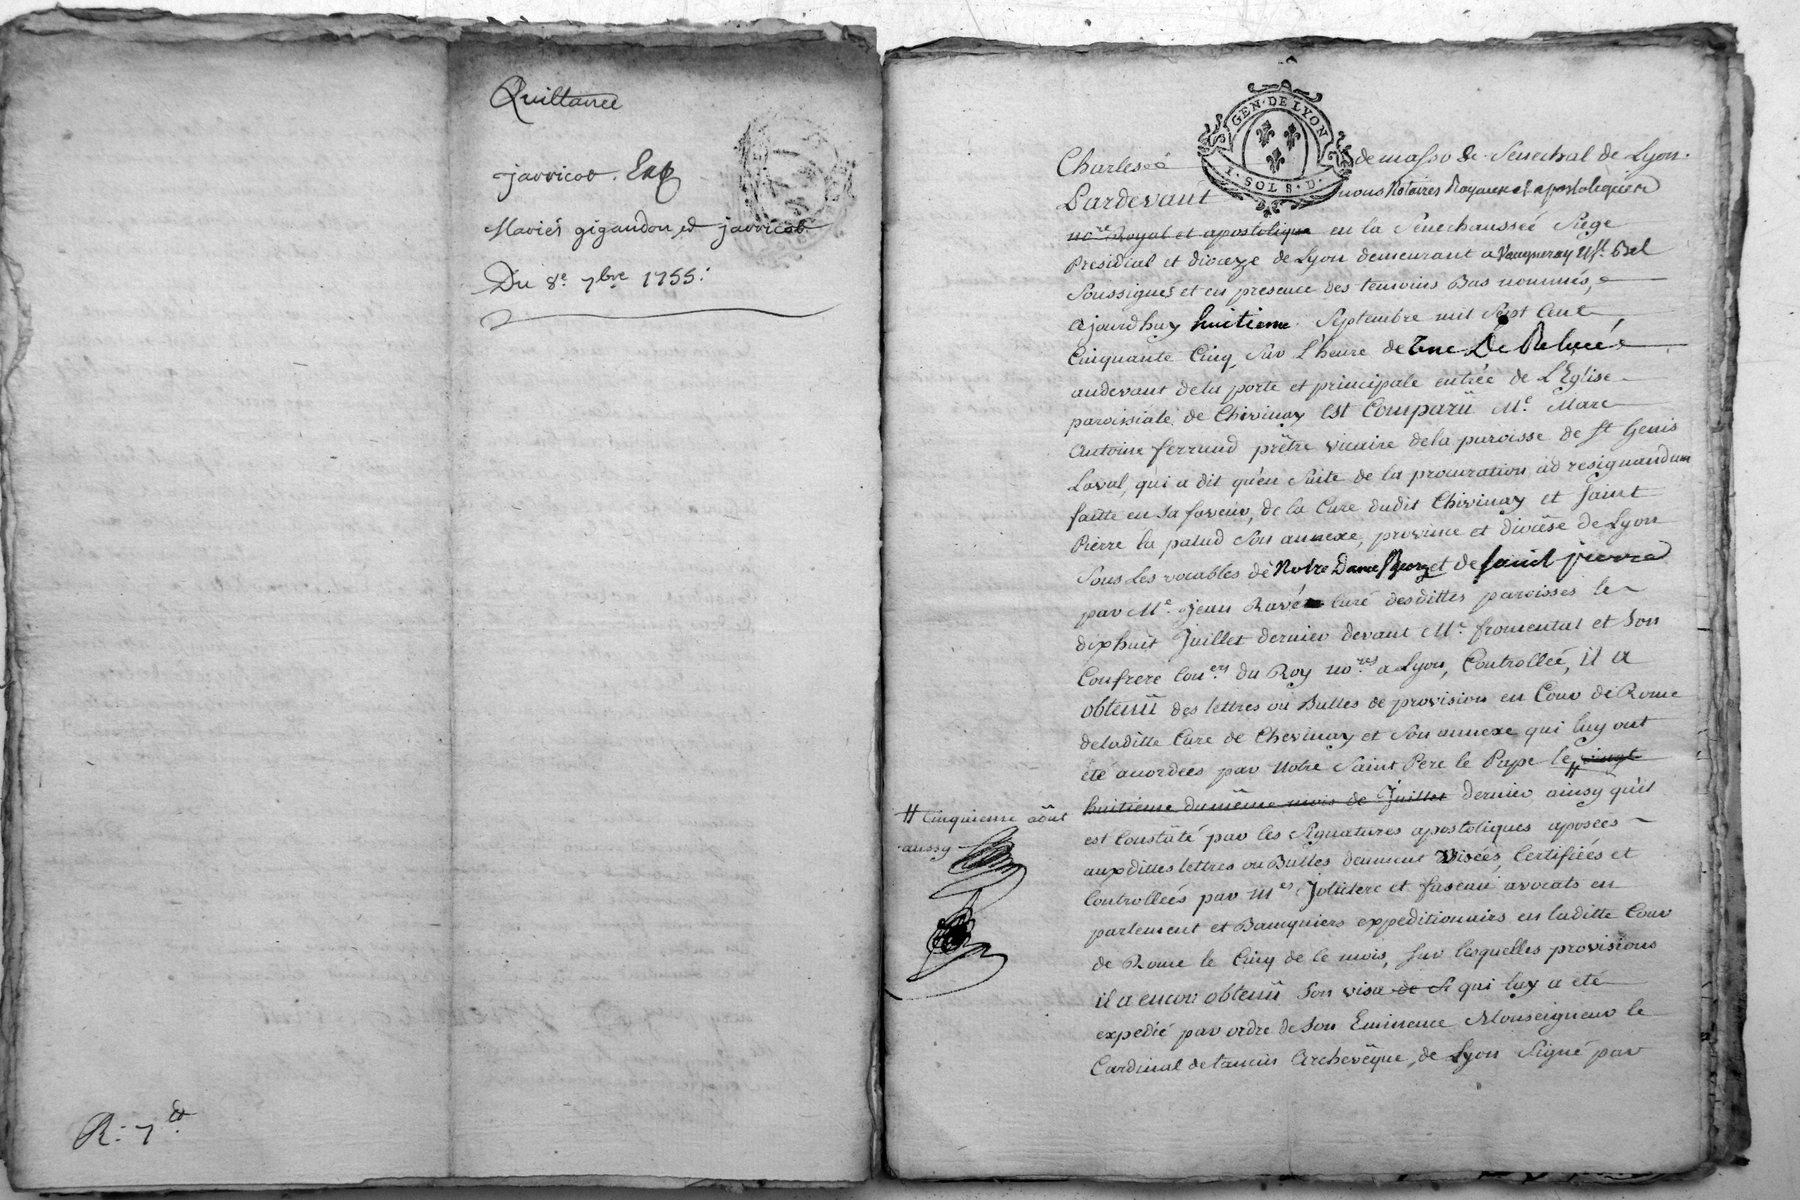 Quittance
javricot. Exp
Mariés gigandon et javricot
Du 8e. 7bre 1755:
R: 7
GEN · DE LYON
1 · SOLS · D.
Charles de masso Se. Senechal de Lyon.
Pardevant nous Notaires Royaux et apostoliques
nore Royal et apostolique en la Senechaussée Siege
Presidial et diocèze de Lyon demeurant a Vaugneray St. Bel
Soussignés et en presence des temoins Bas nommés,
ajourdhuy huitieme Septembre mil Sept Cent
Cinquante Cinq, Sur L'heure de une De Relevée
audevant dela porte et principale entrée de L'Eglise
paroissiale de Chivinay est Comparü Me. Marc
Antoine ferrand prêtre vicaire dela paroisse de St Genis
Laval, qui a dit qu'en Suite de la procuration ad resignandum
faitte en Sa faveur, de la Cure dudit Chivinay et Saint
Pierre la palud Son annexe, province et diocèse de Lyon
Sous les vocables de Notre Dame et de saint pierre
par Me. Jean Ravé Curé desdittes paroisses le
dixhuit Juillet dernier devant Me. fromental et Son
Confrere Couers du Roy nores a Lyon, Controlleé, il a
obtenü des lettres ou Bulles de provision en Cour de Rome
deladitte Cure de Chevinay et Son annexe qui luy ont
été acordées par Notre Saint Pere le Pape le # vingt
huitieme du même mois de Juillet dernier ainsy qu'il
# Cinquieme aôut
aussy
est Constâté par les Signatures apostoliques aposées
auxdittes lettres ou Bulles deument Visées, Certifiées et
Controllées par Mes Joliclerc et faseau avocats en
parlement et Banquiers expeditionnairs en laditte Cour
de Rome le Cinq de ce mois, Sur lesquelles provisions
il a encor obtenü Son visa de S qui luy a eté
expedié par ordre de Son Eminence Monseigneur le
Cardinal de tancin Archevêque, de Lyon Signé par